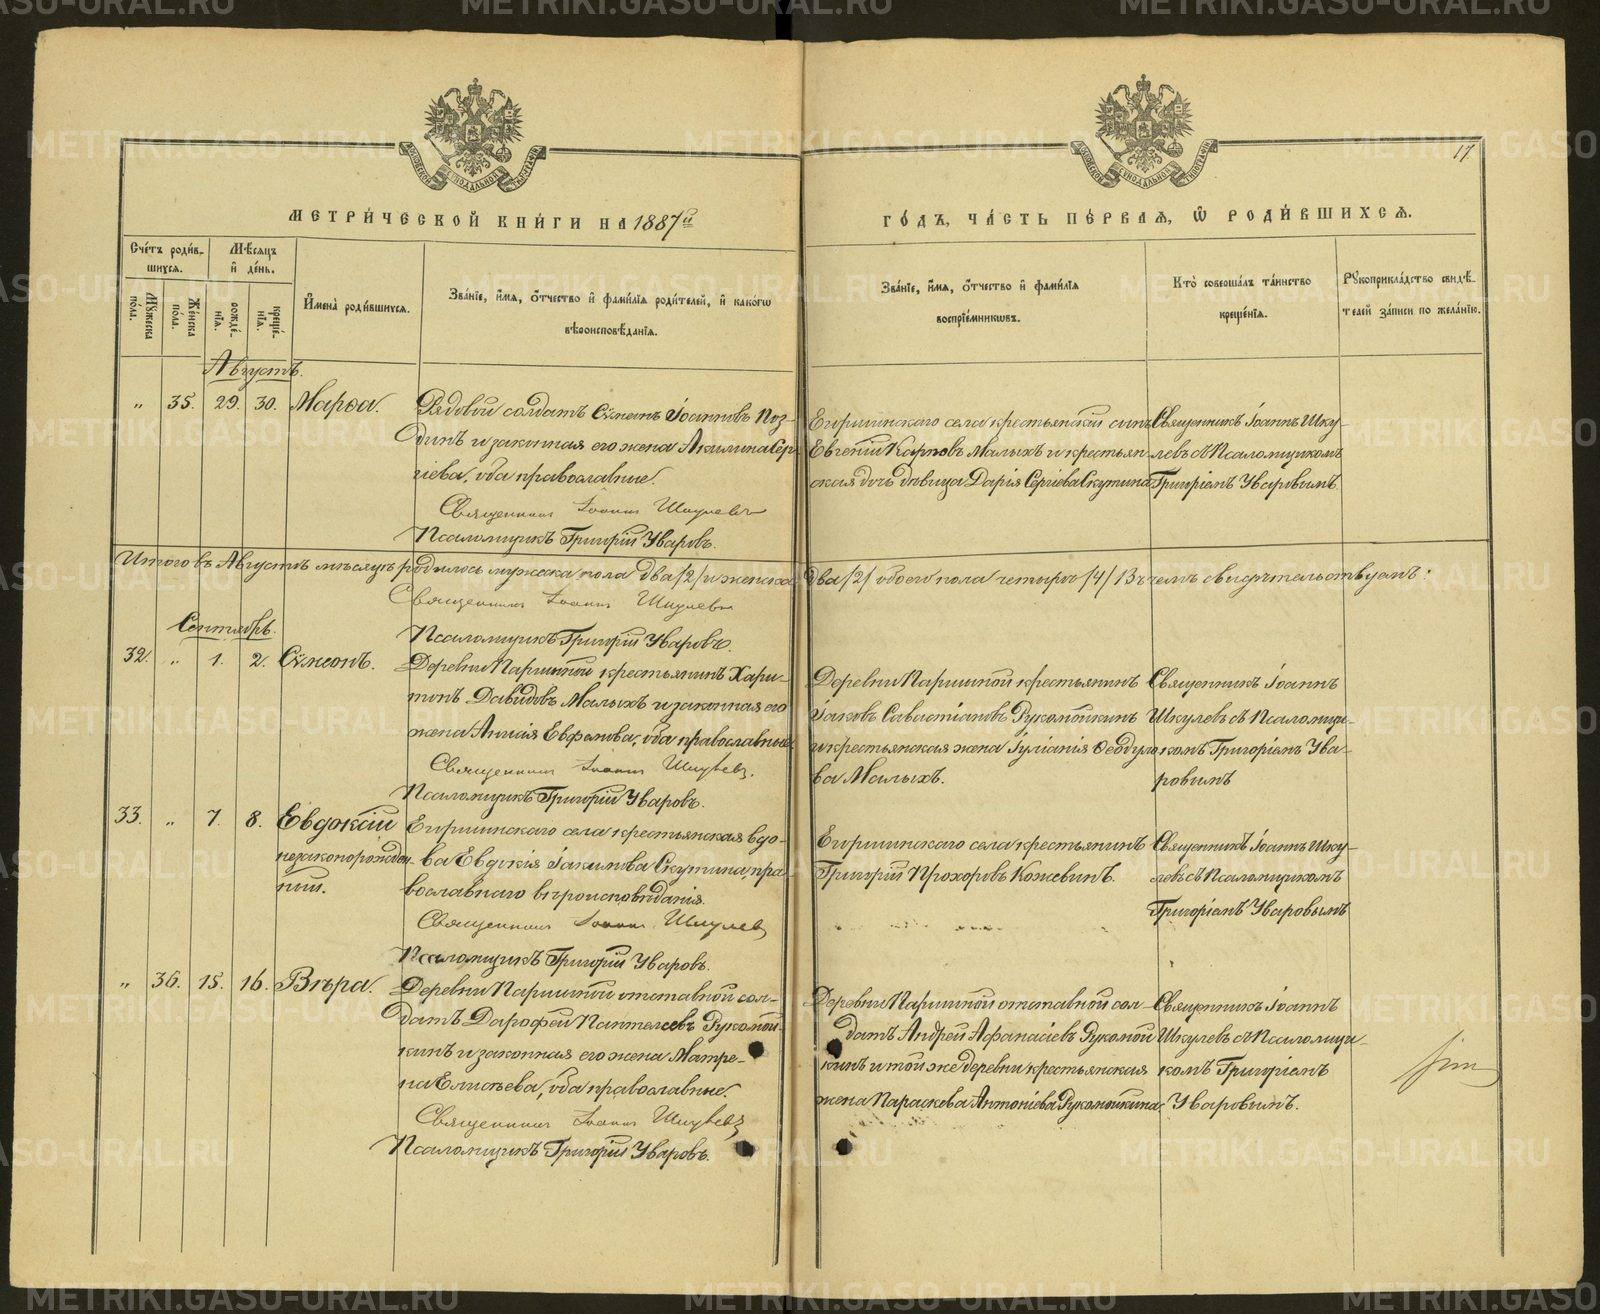 МЕТРИ́ЧЕСКОЙ КНИ́ГИ НА 1887й
ГО́ДЪ, ЧА́СТЬ ПЕ́РВАѦ, Ѡ҆ РОДИ́ВШИХСѦ.
17
Сче́тъ роди́в-
шихсѧ.
Мѣ́сѧцъ
и҆ де́нь.
Мꙋ́жеска
по́ла.
Же́нска
по́ла.
рожде́-
нїѧ.
креще́-
нїѧ.
И҆мена̀ роди́вшихсѧ.
Зва́нїе, и҆́мѧ, ѻ҆́тчество и҆ фами́лїѧ роди́телей, и҆ како́гѡ
вѣроисповѣ́данїѧ.
Зва́нїе, и҆́мѧ, ѻ҆́тчество и҆ фами́лїѧ
воспрїе́мникѡвъ.
Кто̀ соверша́лъ та́инство
креще́нїѧ.
Рꙋкоприкла́дство свидѣ́-
телей за́писи по жела́нїю.
Августъ.
„ 35. 29. 30. Марѳа.
Рядовой солдатъ Сѵмеонъ Іоанновъ Поз-
динъ и законная его жена Акилина Сер-
гіева, оба православные.
Священникъ Іоаннъ Шкулевъ
Псаломщикъ Григорій Уваровъ.
Егоршинскаго села крестьянскій сынъ
Евгеній Карповъ Малыхъ и крестьян
ская дочь девица Дарія Сергіева Скутина
Священникъ Іоаннъ Шку-
левъ съ Псаломщикомъ
Григоріемъ Уваровымъ
Итого въ Августѣ мѣсяцѣ родилось мужеска пола два /2/ и женска два /2/ обоего пола четыре /4/ Въ чемъ свидѣтельствуемъ:
Священникъ Іоаннъ Шкулевъ
Псаломщикъ Григорій Уваровъ.
Сентябрь.
32. „ 1. 2. Сѵмеонъ.
Деревни Паршиной крестьянинъ Хари-
тонъ Давидовъ Малыхъ и законная его
жена Евфимова, оба православные
Священникъ Іоаннъ Шкулевъ.
Псаломщикъ Григорій Уваровъ.
Деревни Паршиной крестьянинъ
Іаковъ Савастіановъ Рукомойкинъ
и крестьянская жена Іуліанія Ѳеодуло
ва Малыхъ.
Священникъ Іоаннъ
Шкулевъ съ Псаломщи-
комъ Григоріемъ Ува-
ровымъ
33. „ 7. 8. Евдокій
незаконорожден
ный.
Егоршинскаго села крестьянская вдо-
ва Евдокія Іакимова Скутина, пра
вославнаго вѣроисповѣданія.
Священникъ Іоаннъ Шкулевъ
Псаломщикъ Григорій Уваровъ.
Егоршинскаго села крестьянинъ
Григорій Прохоровъ Кожевинъ.
Священникъ Іоаннъ Шку-
левъ съ Псаломщикомъ
Григоріемъ Уваровымъ
„ 36. 15. 16. Вѣра.
Деревни Паршиной отставной сол-
датъ Дарофей Пантелеевъ Рукомой-
кинъ и законная его жена Матре-
на Елисѣева, оба православные.
Священникъ Іоаннъ Шкулевъ
Псаломщикъ Григорій Уваровъ.
Деревни Паршиной отставной сол-
датъ Андрей Афанасіевъ Рукомой
кинъ и той же деревни крестьянская
жена Параскева Антоніева Рукомойкина.
Священникъ Іоаннъ
Шкулевъ съ Псаломщи-
комъ Григоріемъ
Уваровымъ.
METRIKI.GASO-URAL.RU